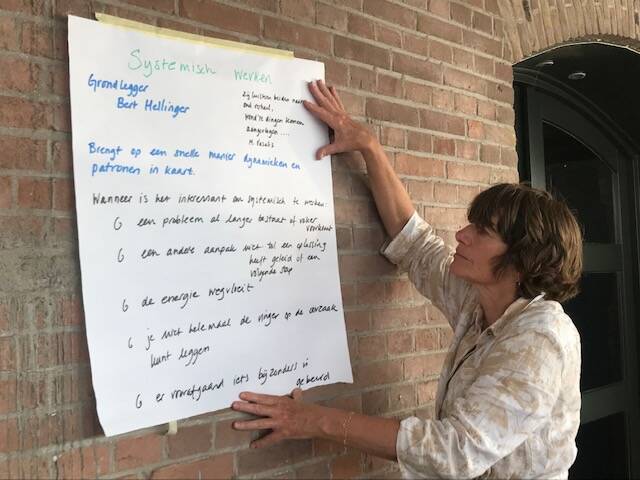 Systemisch werken
Grondlegger
Bert Hellinger
Zij luisteren beiden naar
oud verhaal,
dingen kwamen
aangevlogen ....
M.
Brengt op een snelle manier dynamieken en
patronen in kaart.
Wanneer is het interessant om systemisch te werken:
een probleem al langer bestaat of vaker
voorkomt
een andere aanpak niet tot een oplossing
heeft geleid of een
volgende stap
de energie wegvloeit
je niet helemaal de vinger op de oorzaak
kunt leggen
er voorafgaand iets bijzonders is
gebeurd